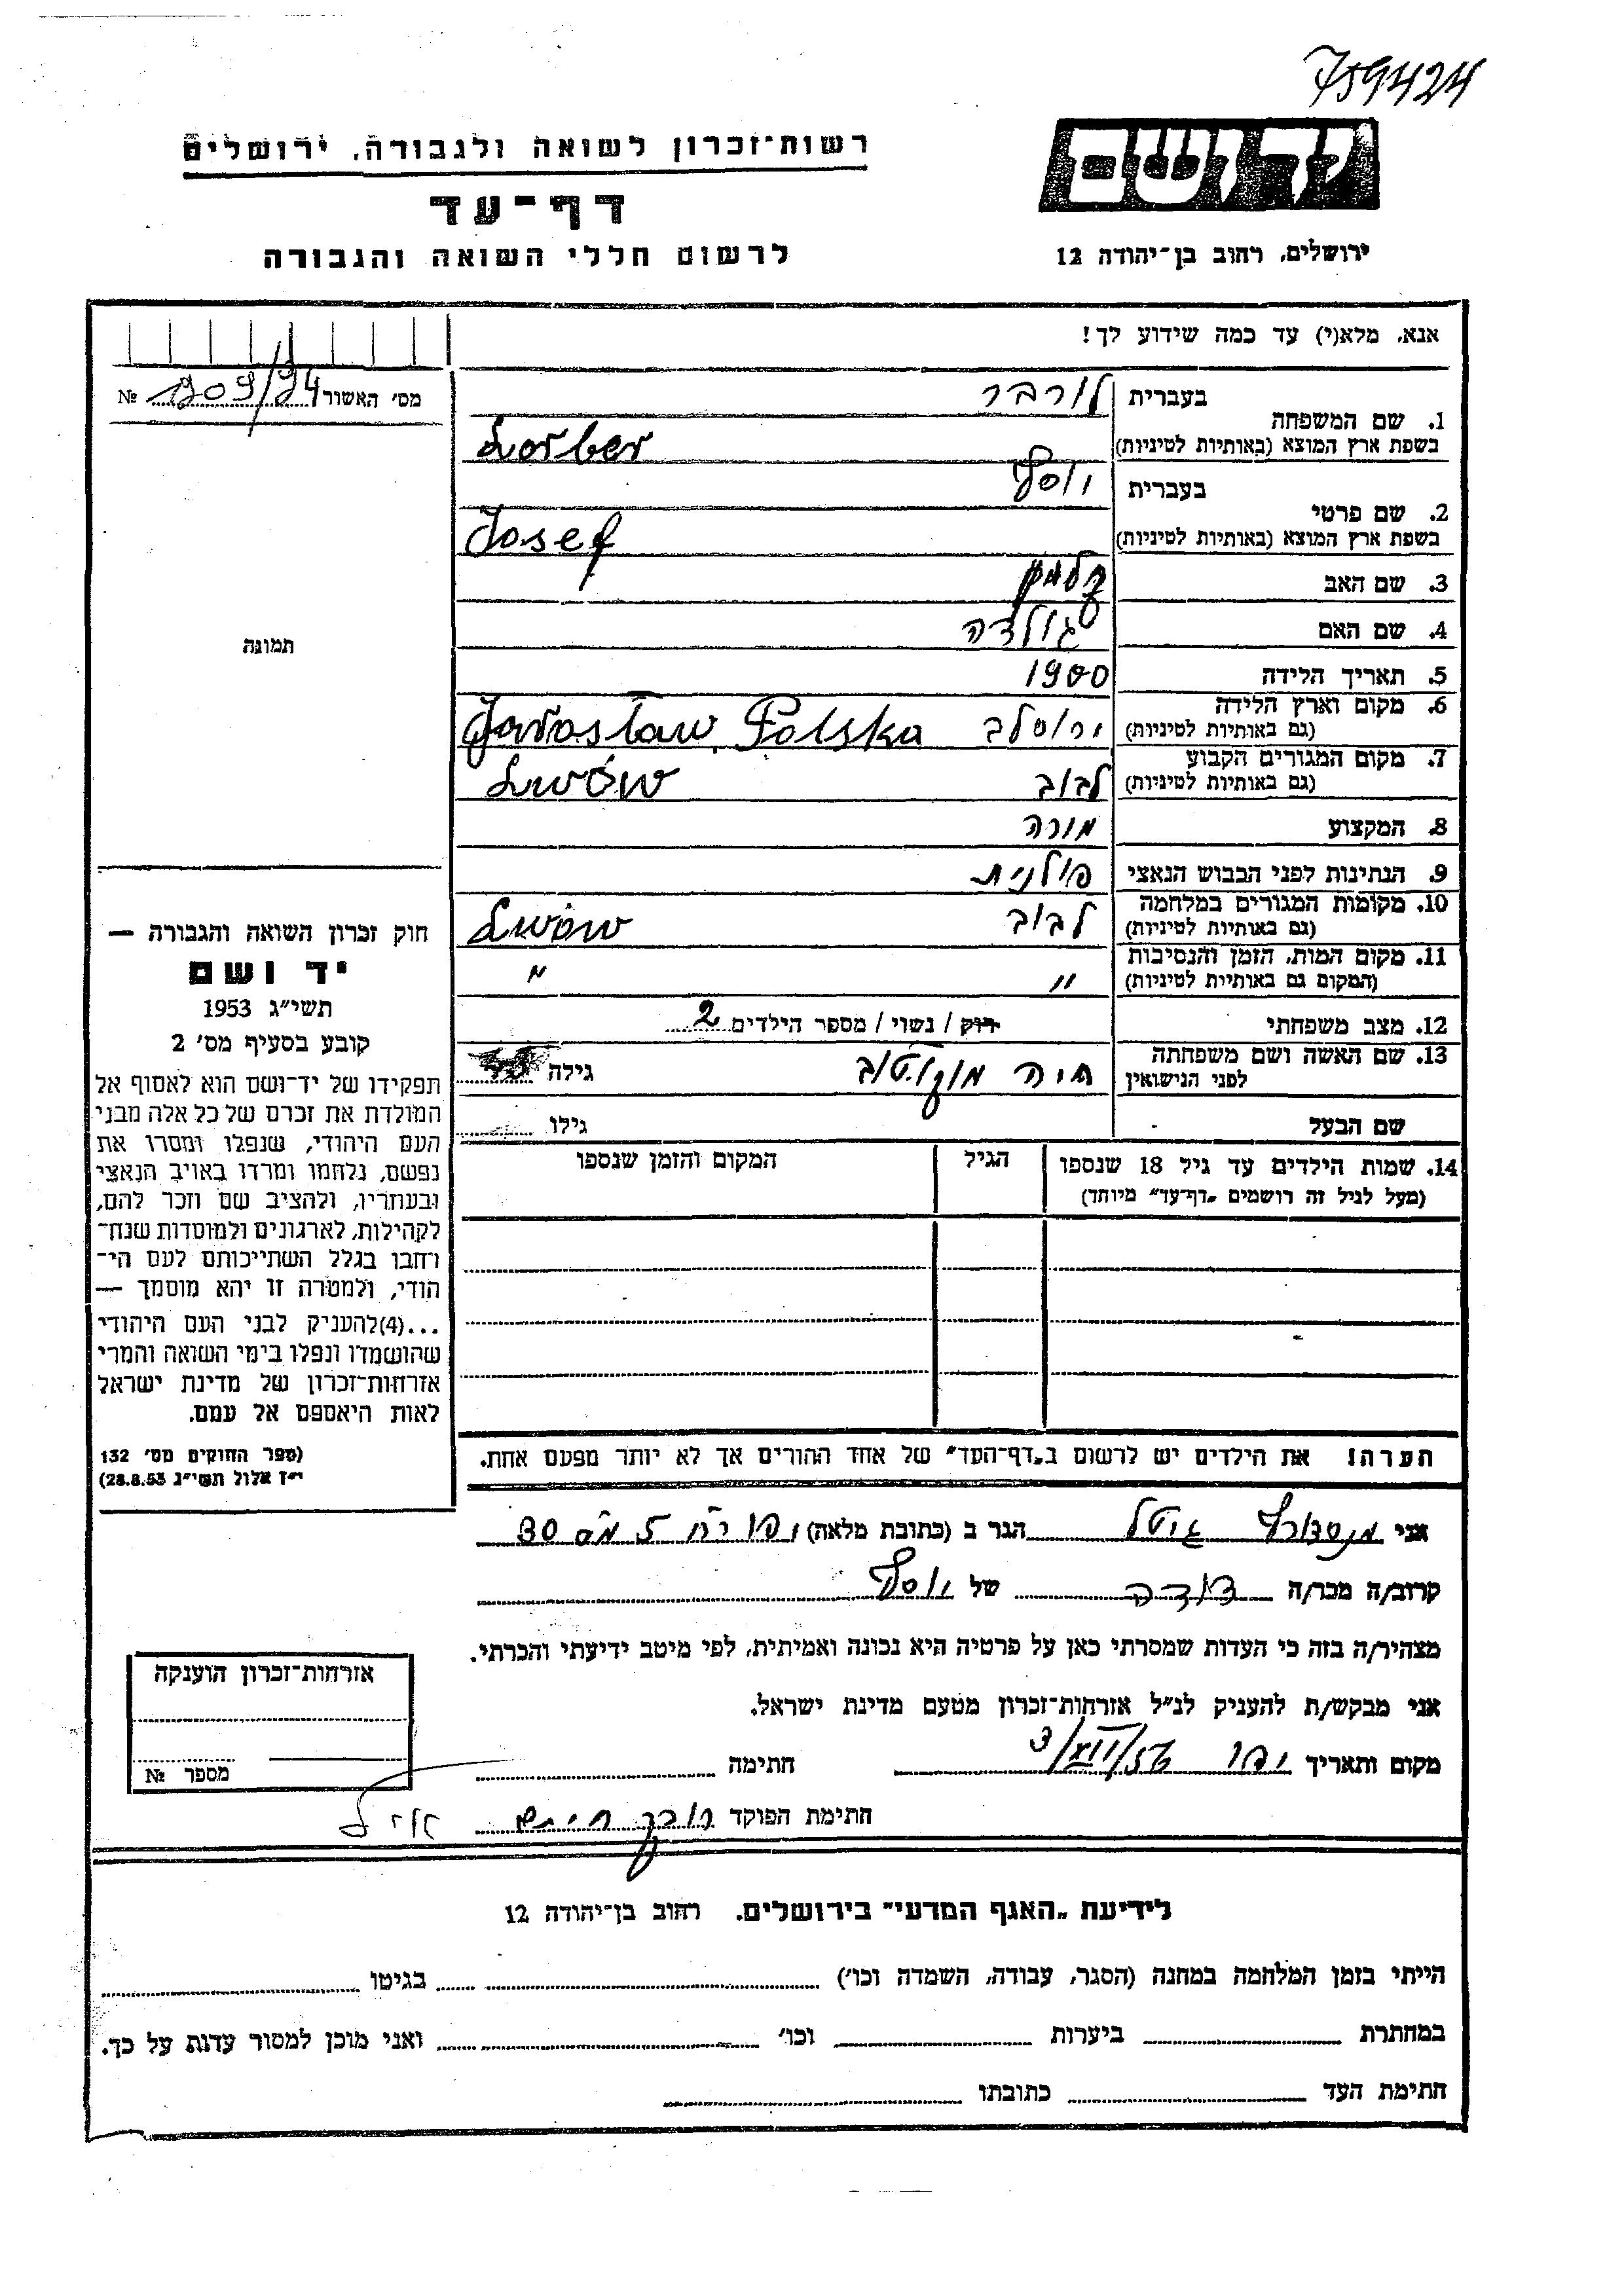 759424
רשות־זכרון לשואה ולגבורה, ירושלים
יד ושם
דף־עד
לרשום חללי השואה והגבורה
ירושלים, רחוב בן־יהודה 12
אנא, מלא(י) עד כמה שידוע לך!
מס' האשור 1909/94 №
תמונה
1. שם המשפחה בעברית לורבר
בשפת ארץ המוצא (באותיות לטיניות) Lorber
2. שם פרטי בעברית יוסף
בשפת ארץ המוצא (באותיות לטיניות) Josef
3. שם האב קלמן
4. שם האם גולדה
5. תאריך הלידה 1900
6. מקום וארץ הלידה
(גם באותיות לטיניות) ירוסלב Jarosław Polska
7. מקום המגורים הקבוע
(גם באותיות לטיניות) לבוב Lwów
8. המקצוע מורה
9. הנתינות לפני הכבוש הנאצי פולנית
10. מקומות המגורים במלחמה
(גם באותיות לטיניות) לבוב Lwów
11. מקום המות, הזמן והנסיבות
(המקום גם באותיית לטיניות) " "
12. מצב משפחתי רוק / נשוי / מספר הילדים 2
13. שם האשה ושם משפחתה
לפני הנישואין חיה גילה
שם הבעל גילו
14. שמות הילדים עד גיל 18 שנספו
(מעל לגיל זה רושמים „דף־עד" מיוחד)
הגיל
המקום והזמן שנספו
הערה! את הילדים יש לרשום ב„דף־העד" של אחד ההורים אך לא יותר מפעם אחת.
חוק זכרון השואה והגבורה —
יד ושם
תשי"ג 1953
קובע בסעיף מס' 2
תפקידו של יד־ושם הוא לאסוף אל
המולדת את זכרם של כל אלה מבני
העם היהודי, שנפלו ומסרו את
נפשם, נלחמו ומרדו באויב הנאצי
ובעוזריו, ולהציב שם וזכר להם,
לקהילות, לארגונים ולמוסדות שנח־
רחבו בגלל השתייכותם לעם הי־
הודי, ולמטרה זו יהא מוסמך —
...(4)להעניק לבני העם היהודי
שהושמדו ונפלו בימי השואה והמרי
אזרחות־זכרון של מדינת ישראל
לאות היאספם אל עמם.
(ספר החוקים מס' 132
י"ז אלול תשי"ג 28.8.53)
אני מנסדורף גיטל הגר ב (כתובת מלאה) יפו 30
קרוב/ה מכר/ה דודה של יוסף
מצהיר/ה בזה כי העדות שמסרתי כאן על פרטיה היא נכונה ואמיתית, לפי מיטב ידיעתי והכרתי.
אני מבקש/ת להעניק לנ"ל אזרחות־זכרון מטעם מדינת ישראל.
מקום ותאריך יפו 3/XII/56 חתימה
חתימת הפוקד
אזרחות־זכרון הוענקה
מספר №
לידיעת „האגף המדעי" בירושלים. רחוב בן־יהודה 12
הייתי בזמן המלחמה במחנה (הסגר, עבודה, השמדה וכו') בגיטו
במחתרת ביערות וכו' ואני מוכן למסור עדות על כך.
חתימת העד כתובתו